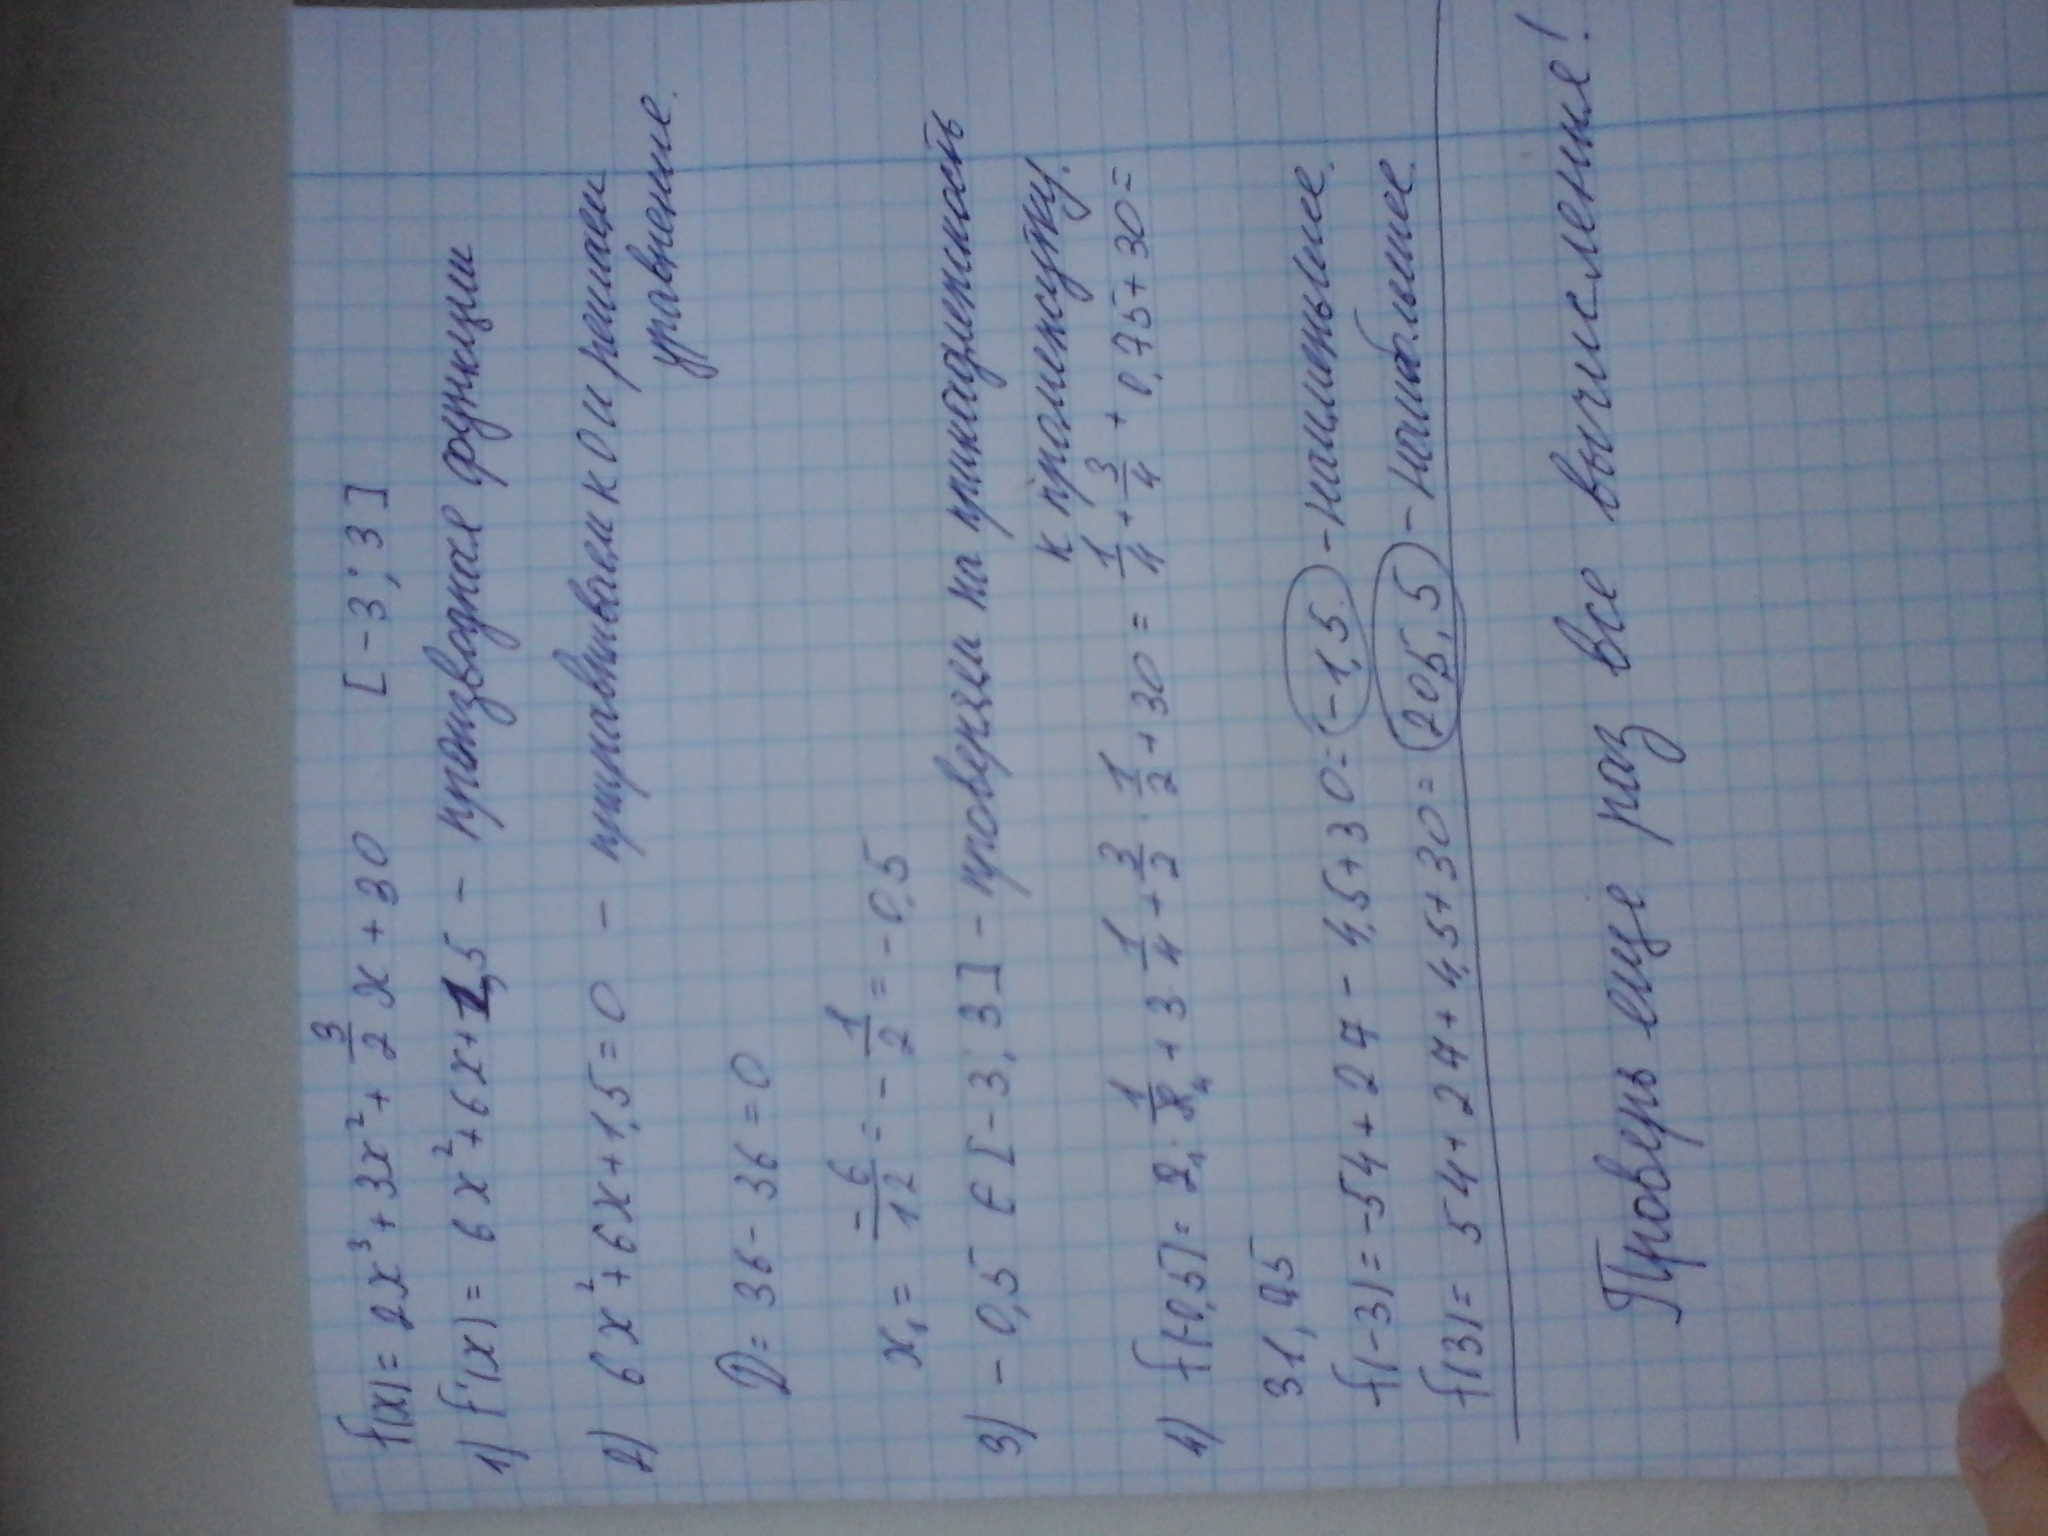 f(x) = 2x³ + 3x² + 3/2 x + 30 [-3; 3]
1) f'(x) = 6x² + 6x + 1,5 - производная функции
2) 6x² + 6x + 1,5 = 0 - приравниваем к 0 и решаем
уравнение.
D = 36 - 36 = 0
x₁ = -6/12 = -1/2 = -0,5
3) -0,5 ∈ [-3; 3] - проверяем на принадлежность
к промежутку.
4) f(-0,5) = 2 · 1/8 + 3 · 1/4 + 3/2 · 1/2 + 30 = 1/4 + 3/4 + 0,75 + 30 =
31,75
f(-3) = -54 + 27 - 4,5 + 30 = -1,5 - наименьшее.
f(3) = 54 + 27 + 4,5 + 30 = 205,5 - наибольшее.
Проверь еще раз все вычисления!